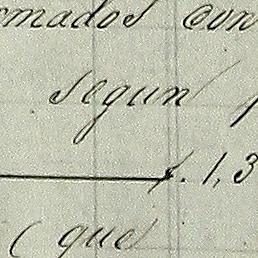 omados con
segun
f. 1,3
( que